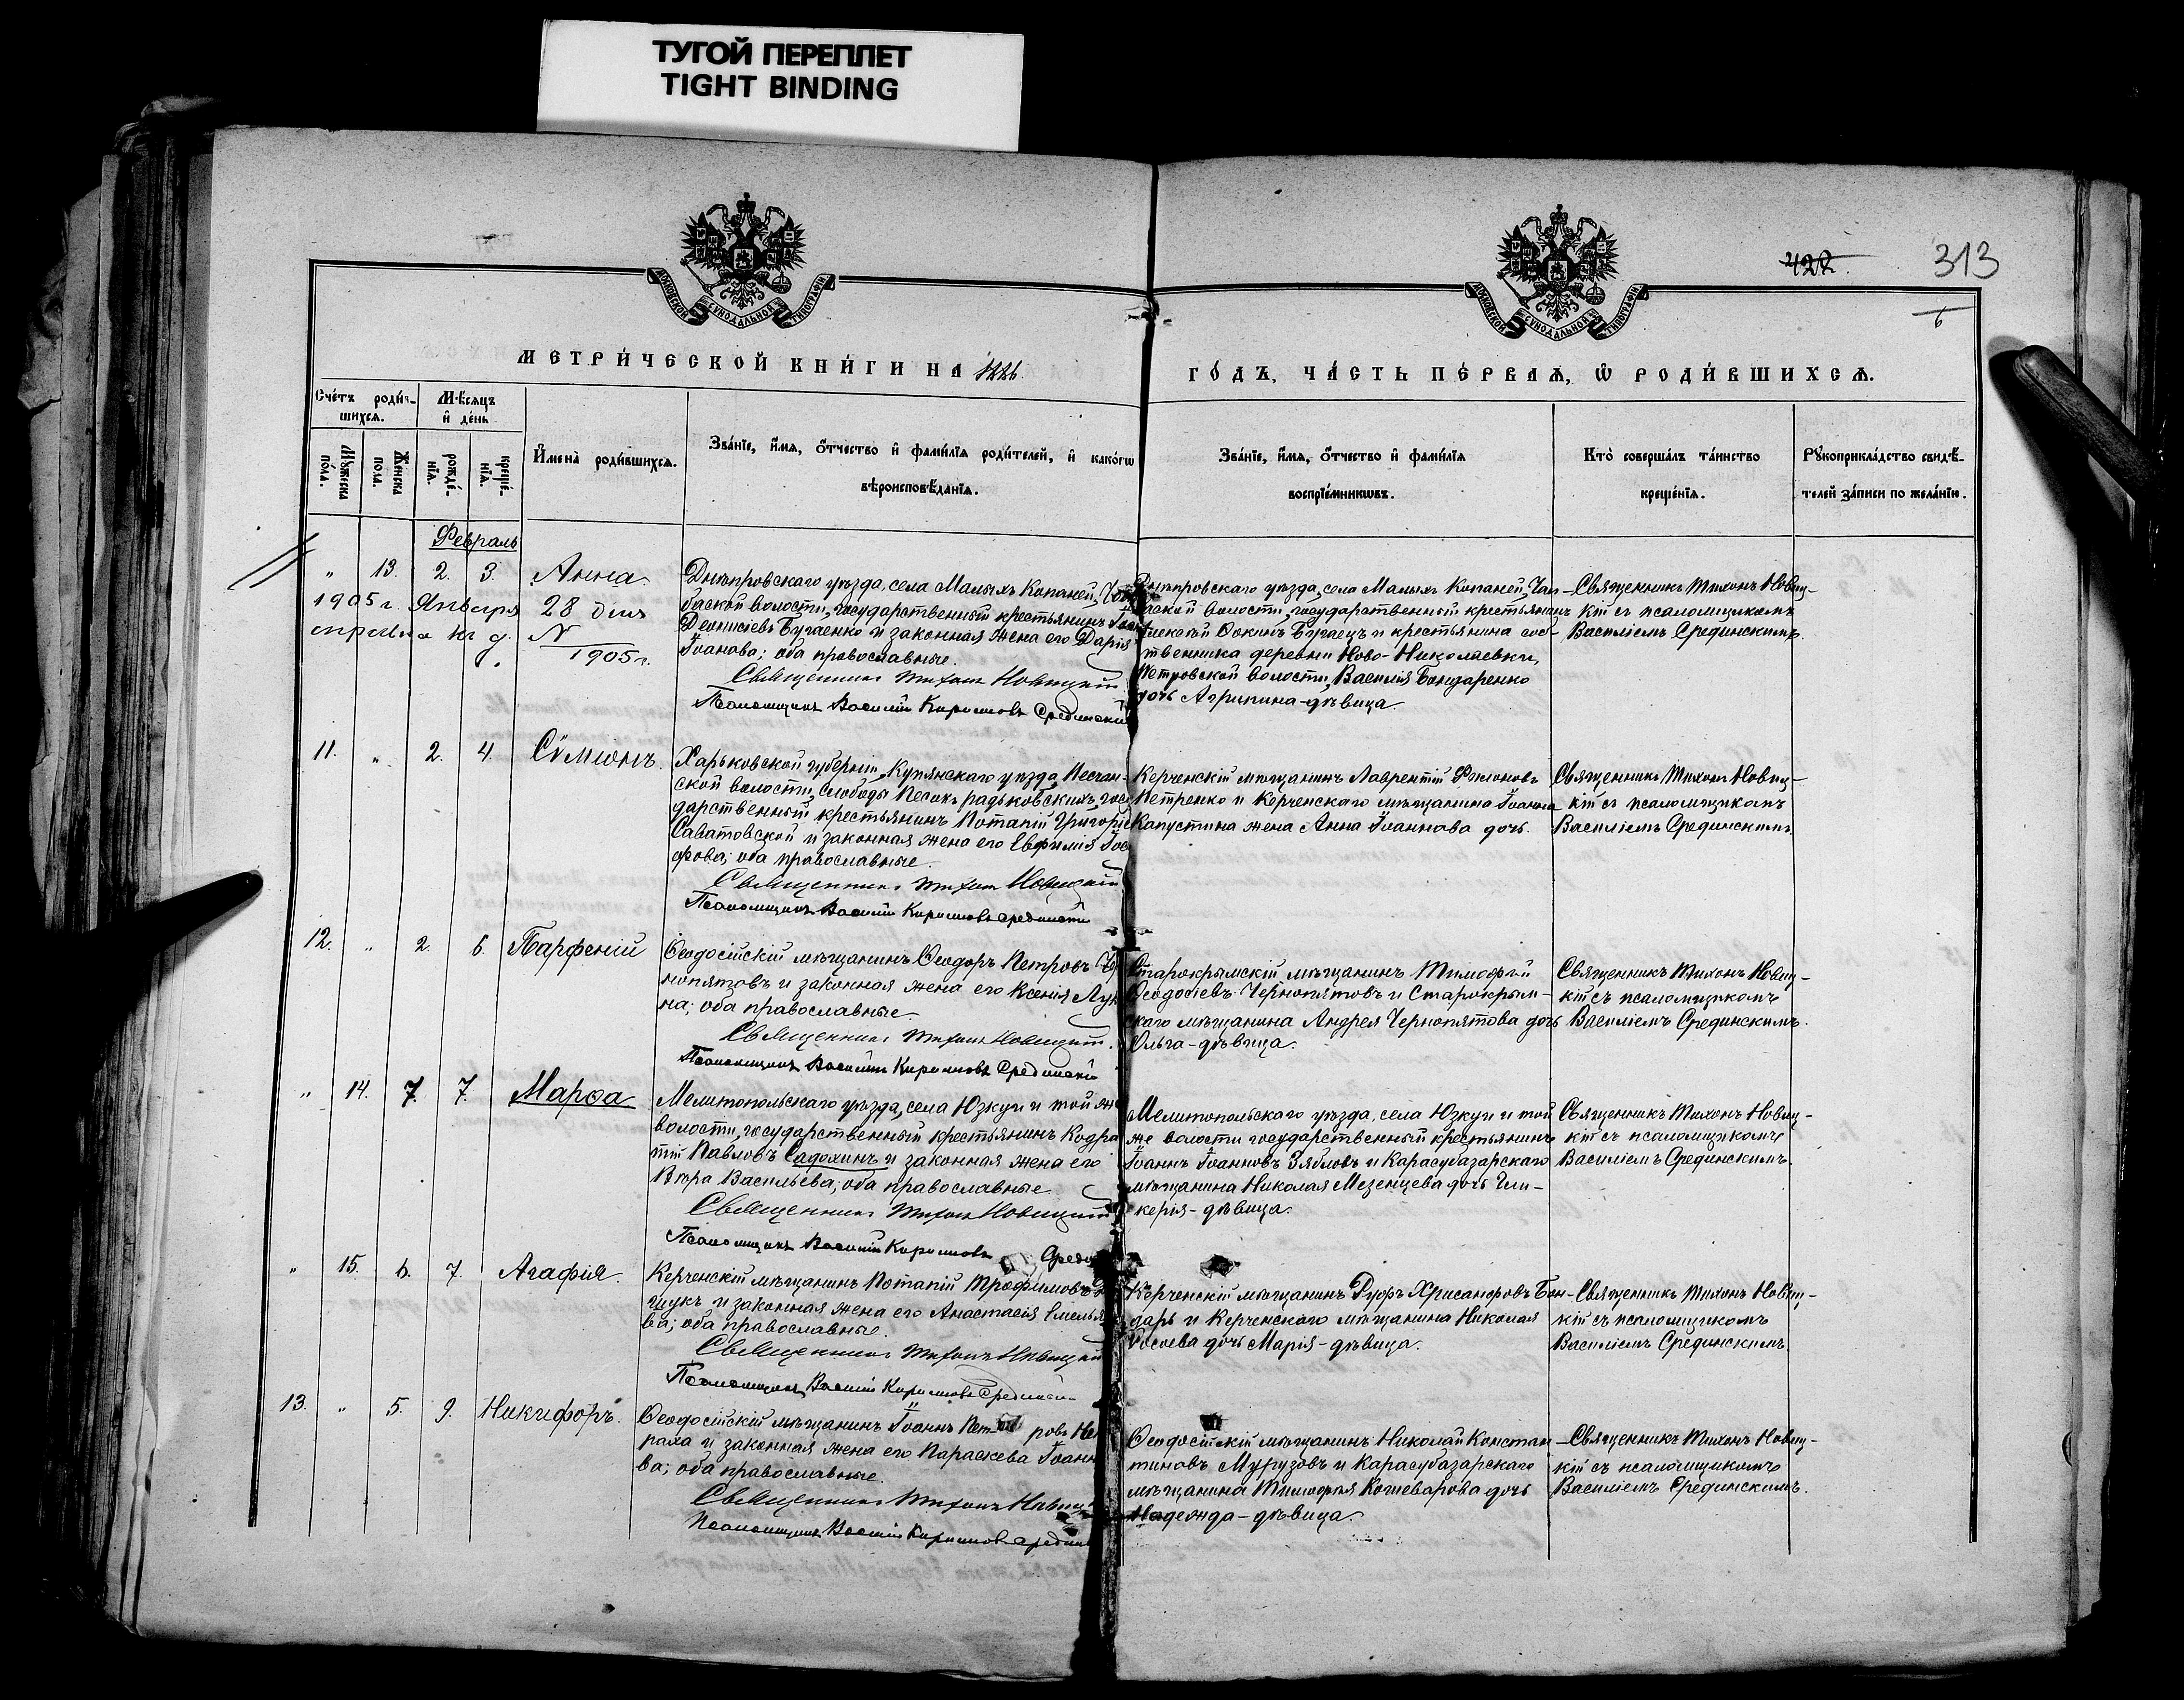 ТУГОЙ ПЕРЕПЛЕТ
TIGHT BINDING
МОСКОВСКОЙ СѴНОДАЛЬНОЙ ТИПОГРАФІИ
МОСКОВСКОЙ СѴНОДАЛЬНОЙ ТИПОГРАФІИ
422.
313
6
МЕТРИ́ЧЕСКОЙ КНИ́ГИ НА 1886.
ГО́ДЪ, ЧА́СТЬ ПЕ́РВАѦ, Ѡ РОДИ́ВШИХСѦ.
Сче́тъ роди́в-
шихсѧ.
Мѣ́сѧцъ
и҆ де́нь
Мꙋ́жеска
по́ла.
Же́нска
пола.
рожде́-
нїѧ.
креще́-
нїѧ.
И҆мена̀ роди́вшихсѧ.
Зва́нїе, и҆́мѧ, ѻ҆́тчество и҆ фами́лїѧ роди́телей, и҆ како́гѡ
вѣроисповѣ́данїѧ.
Зва́нїе, и҆́мѧ, ѻ҆́тчество и҆ фами́лїѧ
воспрїе́мникѡвъ.
Кто̀ соверша́лъ та́инство
креще́нїѧ.
Рꙋкоприкла́дство свидѣ́-
телей за́писи по жела́нїю.
Февраль
" 13. 2. 3. Анна.
1905 г. Января 28 дня
справка
N
1905 г.
Днѣпровскаго уѣзда, села Малыхъ Копаней,
баской волости, государственный крестьянинъ
Деонисіевъ Бугаенко и законная жена его Дарія
Іоанова; оба православные.
Священникъ Тихонъ Новицкій.
Псаломщикъ Василій Кириловъ Срединскій
Днѣпровскаго уѣзда, села Малыхъ Копаней, Чал-
баской волости, государственный крестьянинъ
Алексѣй Ѳокинъ Бугаецъ и крестьянина соб-
ственника деревни Ново-Николаевки,
Петровской волости, Василія Бондаренко
дочь Агрипина-дѣвица.
Священникъ Тихонъ Новиц-
кій съ псаломщикомъ
Василіемъ Срединскимъ.
11. " 2. 4. Сѵмеонъ.
Харьковской губерніи, Купянскаго уѣзда, Песчан-
ской волости, слободы Песокъ радьковскихъ, госу
дарственный крестьянинъ Потапій Григорь
Саватовской и законная жена его Евфимія Іос
фова; оба православные.
Священникъ Тихонъ Новицкій
Псаломщикъ Василій Кириловъ Срединскій
Керченскій мѣщанинъ Лаврентій Филоновъ
Петренко и Керченскаго мѣщанина Іоанна
Капустина жена Анна Іоаннова дочь.
Священникъ Тихонъ Новиц-
кій съ псаломщикомъ
Василіемъ Срединскимъ.
12. " 2. 6. Парфеній
Ѳеодосійскій мѣщанинъ Ѳеодоръ Петровъ Чер
нопятовъ и законная жена его Ксенія Луки
на; оба православные.
Священникъ Тихонъ Новицкій.
Псаломщикъ Василій Кириловъ Срединскій
Старокрымскій мѣщанинъ Тимофей
Ѳеодосіевъ Чернопятовъ и Старокрым-
скаго мѣщанина Андрея Чернопятова дочь
Ольга-дѣвица.
Священникъ Тихонъ Новиц-
кій съ псаломщикомъ
Василіемъ Срединскимъ.
" 14. 7. 7. Марѳа
Мелитопольскаго уѣзда, села Юзкуи и той же
волости, государственный крестьянинъ Кодра
тій Павловъ Садохинъ и законная жена его
Вѣра Васильева; оба православные.
Священникъ Тихонъ Новицкій
Псаломщикъ Василій Кириловъ Средин
Мелитопольскаго уѣзда, села Юзкуи и той
же волости государственный крестьянинъ
Іоаннъ Іоанновъ Зябловъ и Карасубазарскаго
мѣщанина Николая Мезенцева дочь Гли-
керія-дѣвица.
Священникъ Тихонъ Новиц-
кій съ псаломщикомъ
Василіемъ Срединскимъ.
" 15. 6. 7. Агафія.
Керченскій мѣщанинъ Потапій Трофимовъ
щукъ и законная жена его Анастасія Емелья
ва; оба православные.
Священникъ Тихонъ Новицкій
Псаломщикъ Василій Кириловъ Срединскій
Керченскій мѣщанинъ Руфъ Хрисанфовъ Бон-
дарь и Керченскаго мѣщанина Николая
дочь Марія-дѣвица.
Священникъ Тихонъ Новиц-
кій съ псаломщикомъ
Василіемъ Срединскимъ.
13. " 5. 9. Никифоръ.
Ѳеодосійскій мѣщанинъ Іоаннъ Пет ровъ Не
раха и законная жена его Параскева Іоанно
ва; оба православные.
Священникъ Тихонъ Новицкій
Псаломщикъ Василій Кириловъ Средин
Ѳеодосійскій мѣщанинъ Николай Констан-
тиновъ Мурузовъ и Карасубазарскаго
мѣщанина Тимофея Кошеварова дочь
Надежда-дѣвица.
Священникъ Тихонъ Новиц-
кій съ псаломщикомъ
Василіемъ Срединскимъ.